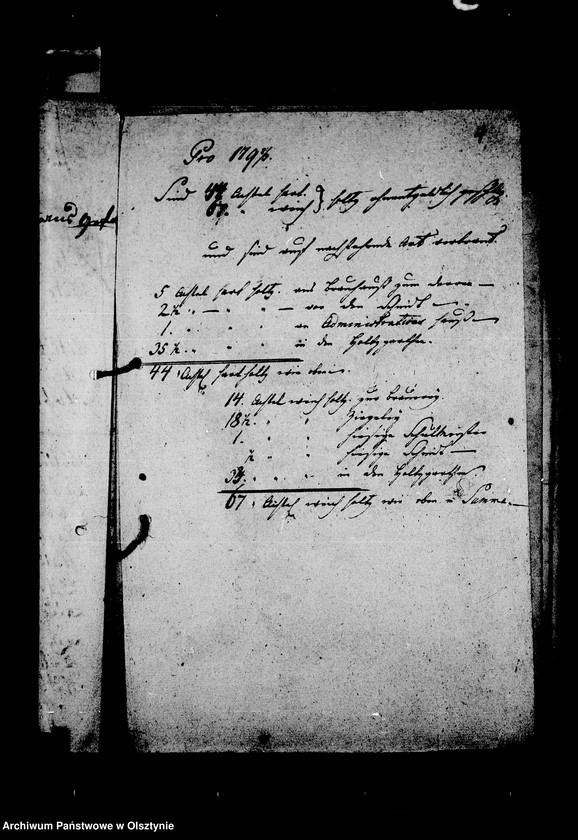 4
Pro 179
Sind 44 Achtel hart
67 " weich } holtz
und sind auf nachstehende Art verbrant.
5 Achtel hart holtz ins Brauhauß zum
2 ½ " — " — von den Schmidt
1. " " " in Administrations hauß
35 ½ " " " in den Holtzgarthen.
44 Achtel hart holtz wie oben.
14. Achtel weich holtz zur Brauerey.
18 ½ " " Ziegeley
1. " " hiesige Schulmeister
½ " " hiesige Schmidt
" " in den Holtzgarthen
67 Achtel weich holtz wie oben u Summa.
aus
Archiwum Państwowe w Olsztynie